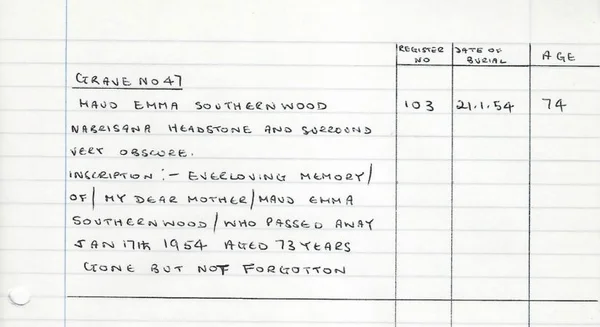 REGISTER NO DATE OF BURIAL AGE
GRAVE NO 47
MAUD EMMA SOUTHERNWOOD 103 21.1.54 74
NABRISANA HEADSTONE AND SURROUND
VERY OBSCURE.
INSCRIPTION :- EVERLOVING MEMORY/
OF/ MY DEAR MOTHER/MAUD EMMA
SOUTHERNWOOD/WHO PASSED AWAY
JAN 17TH 1954 AGED 73 YEARS
GONE BUT NOT FORGOTTON